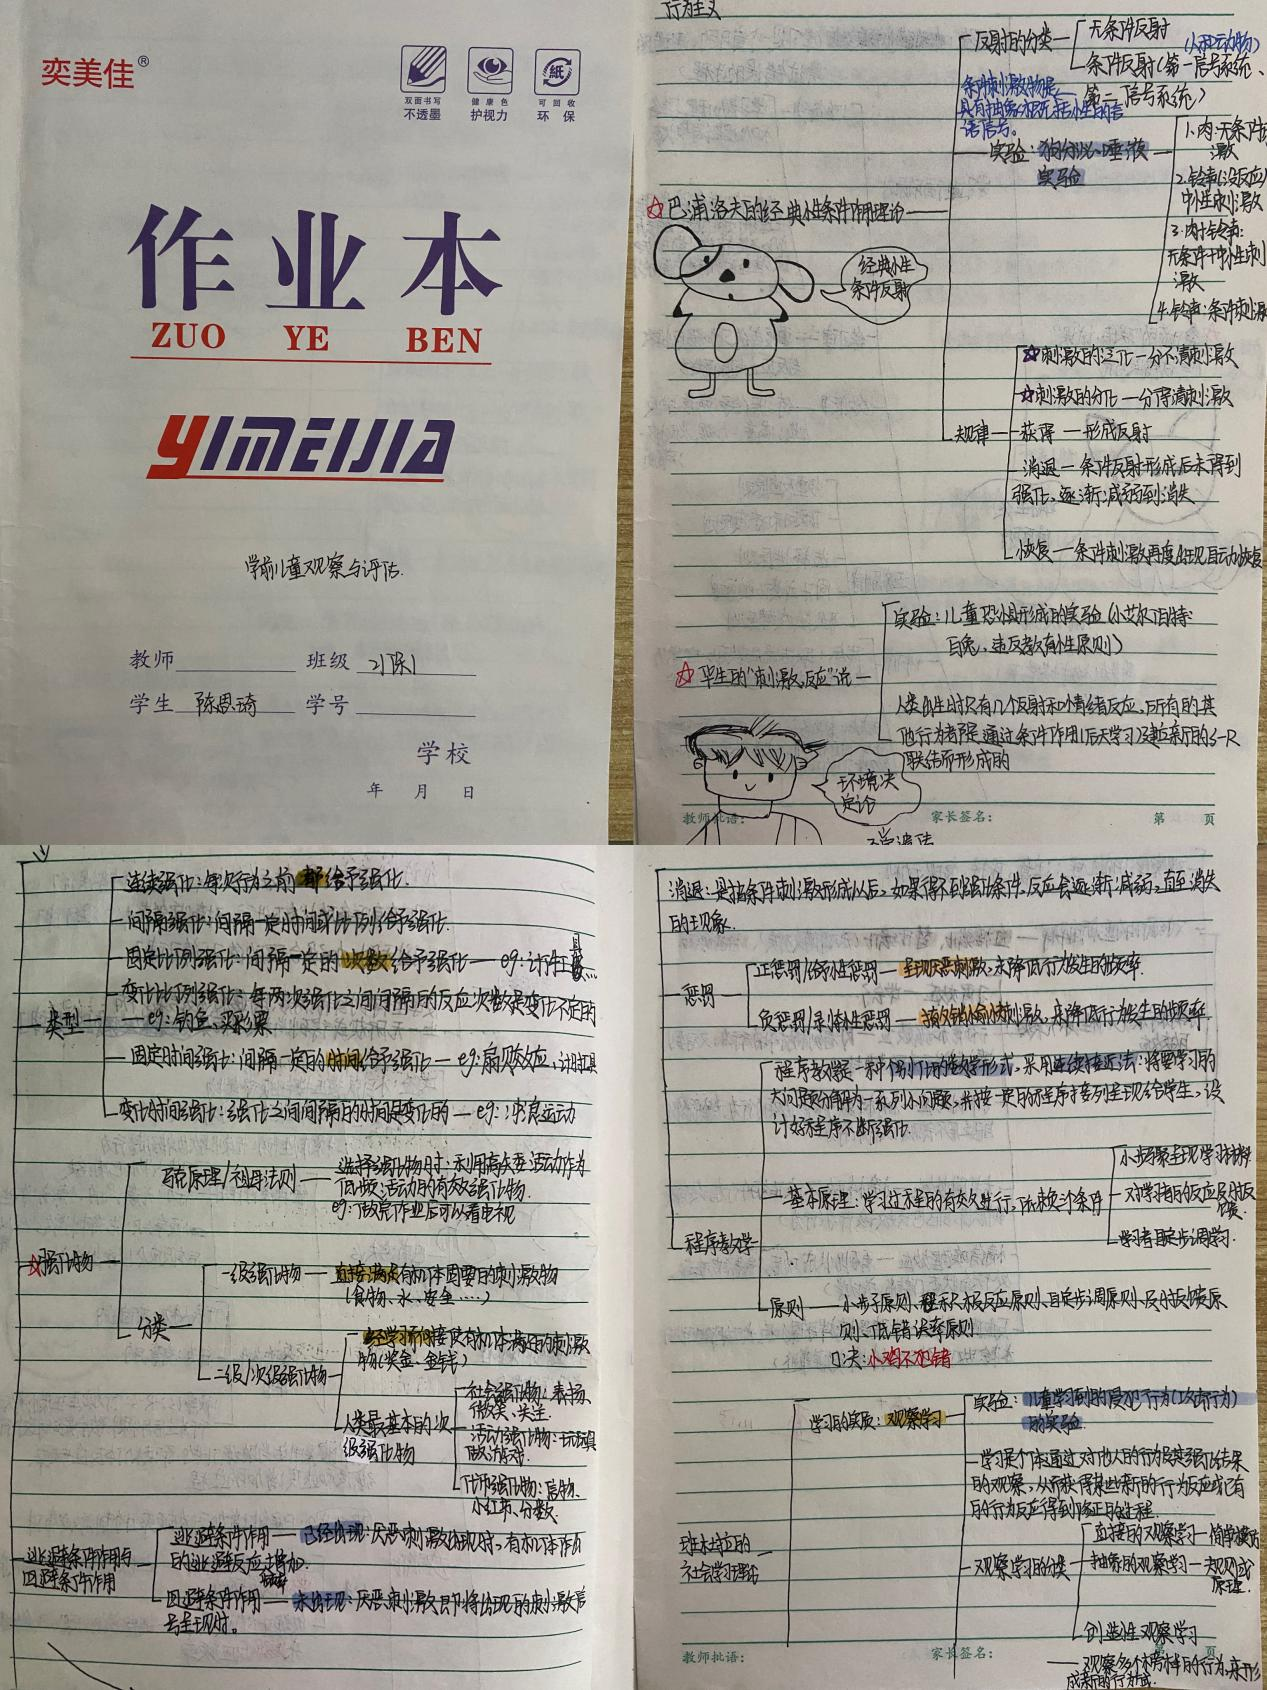 奕美佳®
双面书写 健康色 可回收
不透墨 护视力 环保
作业本
ZUO YE BEN
YIMEIJIA
学前儿童观察与评估.
教师 班级
学生 陈思琦 学号
学校
年 月 日
行为主义
反射的分类
无条件反射
(人和动物)
条件反射(第一信号系统、
第二信号系统)
条件刺激物是
具有抽象概括性的言
语信号。
实验:狗分泌唾液
实验
1.肉:无条件刺
激
2.铃声(没反应)
中性刺激
3.肉+铃声:
无条件+中性刺
激
4.铃声:条件刺激
☆巴浦洛夫的经典性条件作用理论
经典性
条件反射
规律
☆刺激的泛化—分不清刺激
☆刺激的分化—分得清刺激
获得—形成反射
消退—条件反射形成后未得到
强化,逐渐减弱到消失
恢复—条件刺激再度出现自动恢复
☆华生的“刺激反应”说
实验:儿童恐惧形成的实验(小艾尔伯特
白兔、违反教育性原则)
人类出生时只有几个反射和情绪反应、所有的其
他行为都是通过条件作用(后天学习)建立新的S-R
联结而形成的
环境决
定论
教师批语: 家长签名: 第 页
类型
连续强化:每次行为之前都给予强化.
间隔强化:间隔一定时间或比例给予强化.
固定比例强化:间隔一定的次数给予强化—eg:计件工
变化比例强化:每两次强化之间间隔的反应次数是变化不定的
—eg:钓鱼、买彩票
固定时间强化:间隔一定的时间给予强化—eg:扇贝效应、计时工资
变化时间强化:强化之间间隔的时间是变化的—eg:冲浪运动
☆强化物
普雷马克原理/祖母法则—选择强化物时:利用高频活动作为
低频活动的有效强化物.
eg:做完作业后可以看电视
分类
一级强化物—直接满足有机体需要的刺激物
(食物、水、安全……)
二级/次级强化物
经学习间接使有机体满足的刺激
物(奖金、金钱)
人类最基本的次
级强化物
社会强化物:表扬、
微笑、关注.
活动强化物:玩玩具
做游戏.
代币强化物:信物、
小红花、分数.
逃避条件作用与
回避条件作用
逃避条件作用—已经出现:厌恶刺激出现时,有机体作出
的逃避反应增加.
回避条件作用—未出现:厌恶刺激即将出现的刺激信
号呈现时。
消退:是指条件刺激形成以后,如果得不到强化条件,反应会逐渐减弱,直至消失
的现象.
惩罚
正惩罚/给予性惩罚—呈现厌恶刺激,来降低行为发生的频率.
负惩罚/剥夺性惩罚—撤销愉快刺激,来降低行为发生的频率
程序教学
程序教学是一种个别化的教学形式,采用连续接近法:将要学习的
大问题分解为一系列小问题,并按一定的程序排列呈现给学生,设
计好程序不断强化.
基本原理:学习过程的有效进行,依赖3个条件
小步骤呈现学习材料
对学习者的反应及时反
馈.
学习者自定步调学习.
原则—小步子原则、积极反应原则、自定步调原则、及时反馈原
则、低错误率原则
口决:小鸡不犯错
班杜拉的
社会学习理论
学习的实质:观察学习
实验:儿童学习到的侵犯行为(攻击行为)
的实验.
学习是个体通过对他人的行为及其强化结果
的观察,从而获得某些新的行为反应或已有
的行为反应得到修正的过程.
观察学习的分类
直接的观察学习—简单模仿
抽象的观察学习—规则或
原理.
创造性观察学习
—观察多个榜样的行为,来形
成新的行为方式.
教师批语: 家长签名: 第 页